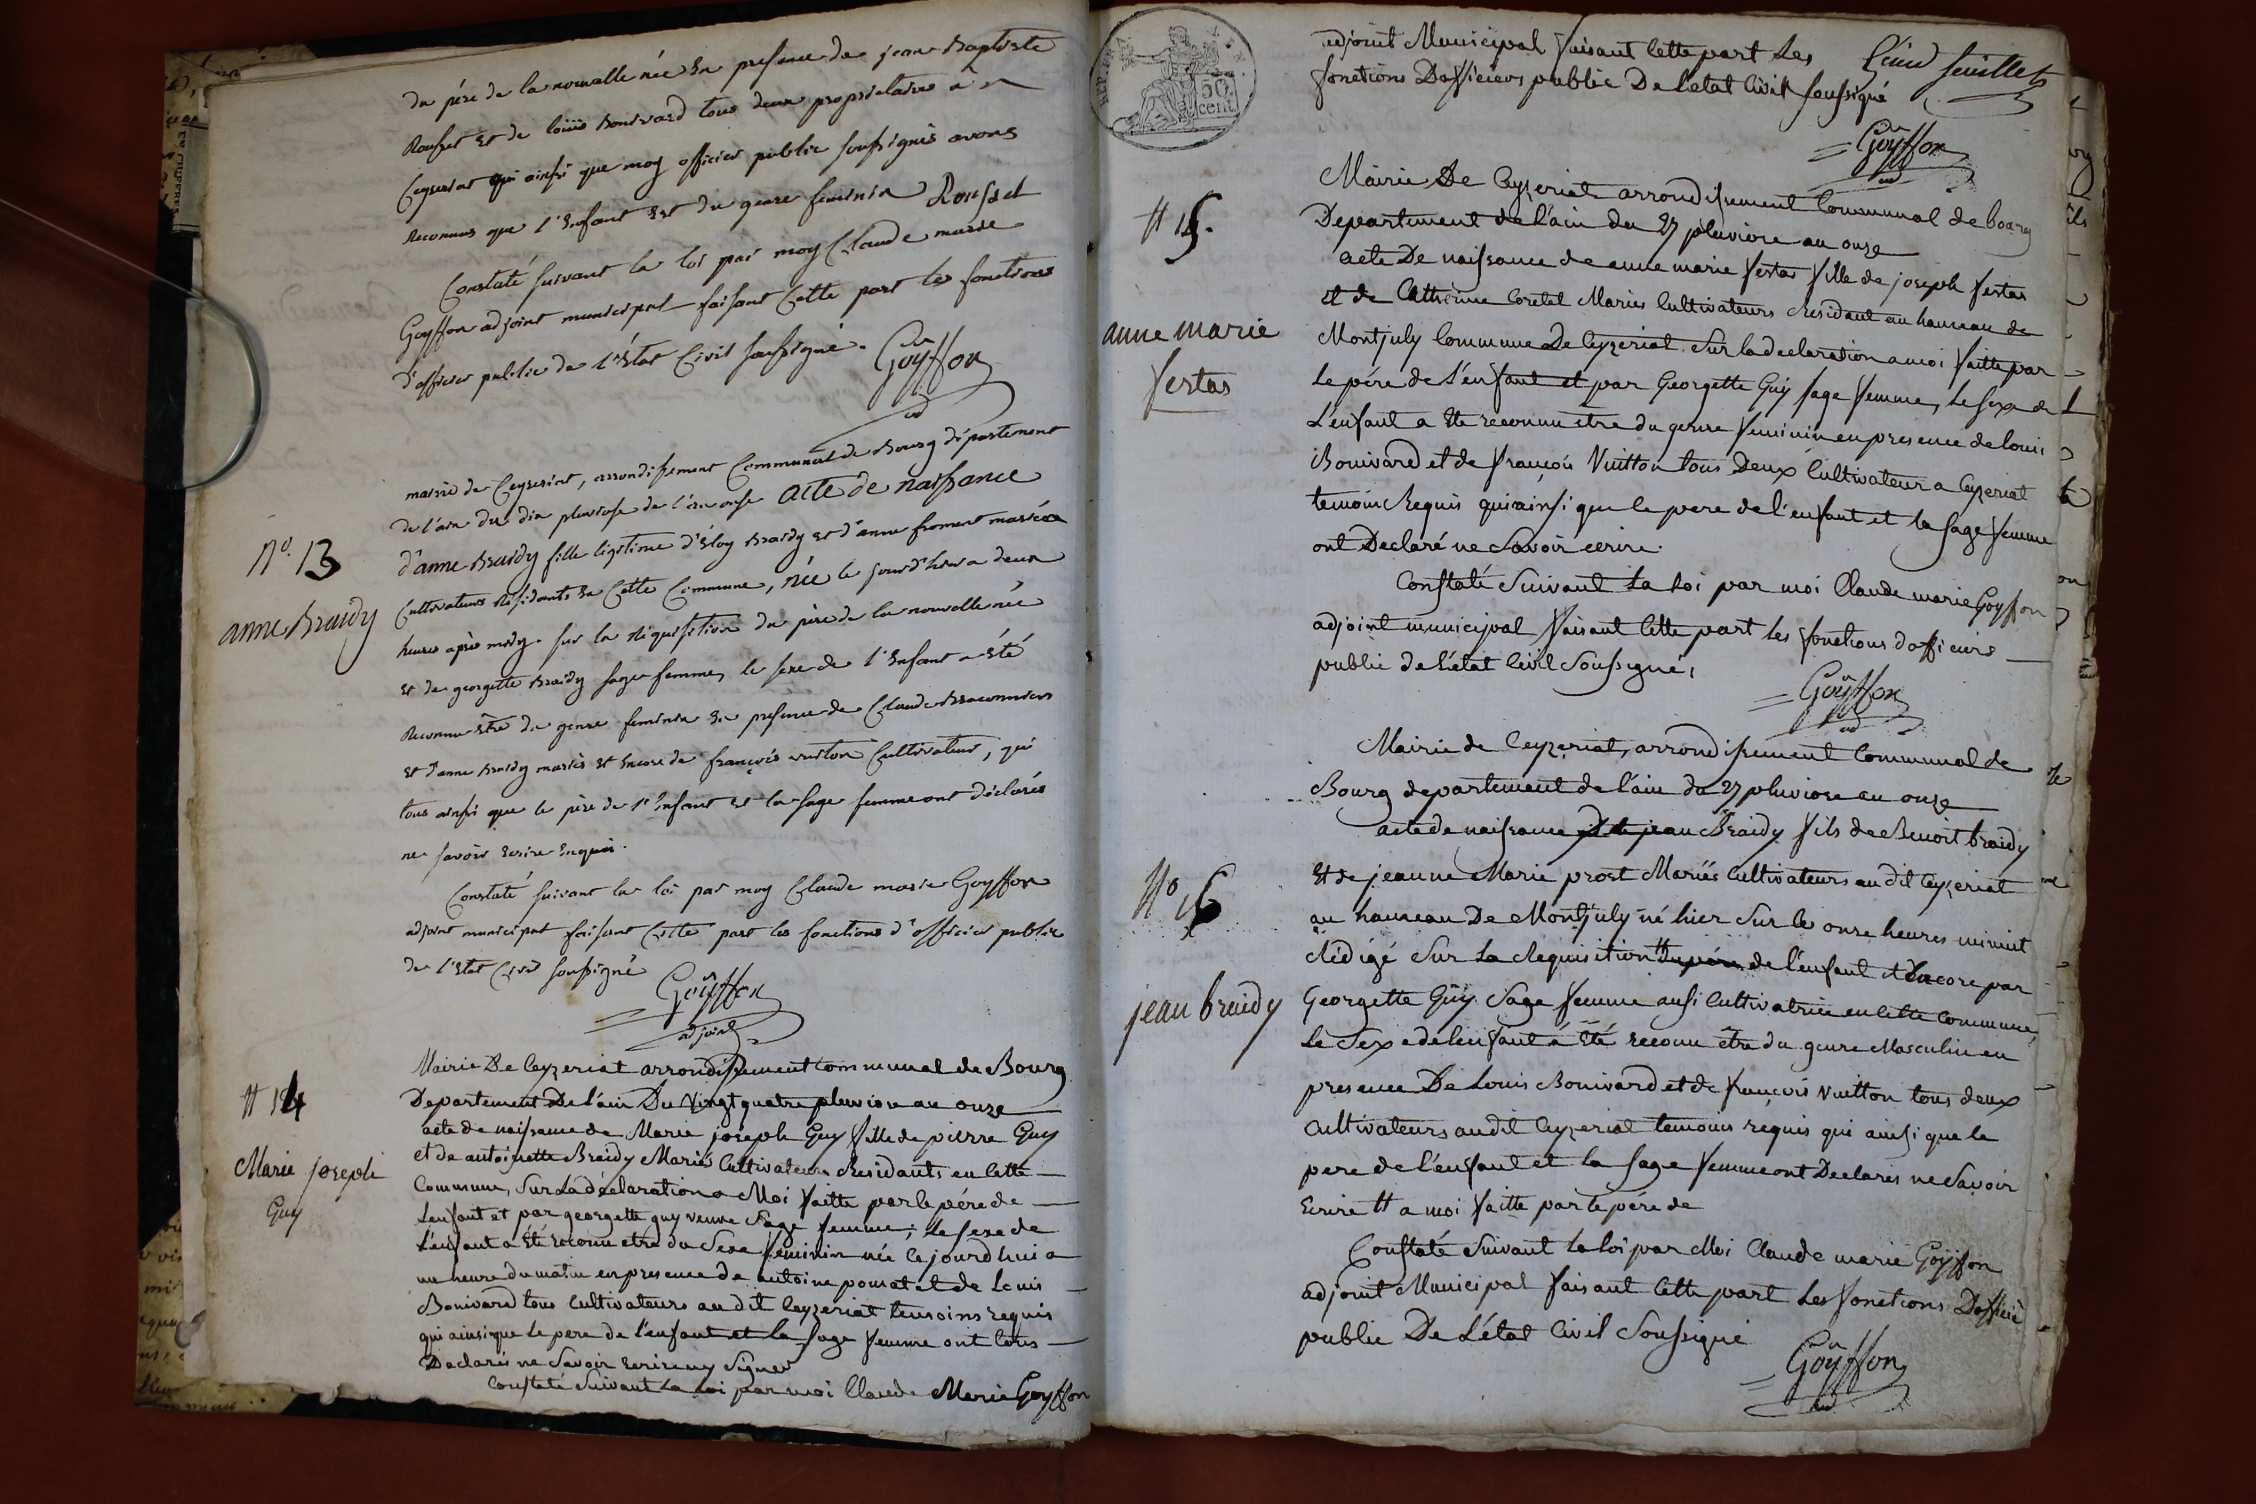 du père de la nouvelle née En presence de jean Baptiste
Rousset et de loüis Bonivard tous deux propriétaires à
Ceyzeriat qui ainsi que moy officier public soussignés avons
Reconnus que l'Enfant Est du genre feminin Rousset
Constaté suivant la loi par moy Claude marie
Goyffon adjoint municipal faisant Cette part les fonctions
d'officier public de l'État Civil soussigné. Goÿffon
ad
mairie de Ceyzeriat, arrondissement Communal de Bourg département
de l'ain du dix pluviose de l'an onze acte de naissance
N.o 13
d'anne Braidy fille légitime d'Eloy Braidy et d'anne froment mariés
anne Braidy
Cultivateurs Résidants En Cette Commune, née le jourd'huy a deux
heures après midy. sur la réquisition du père de la nouvelle née
et de georgette Braidy sage femme, le sexe de l'Enfant a été
Reconnu être du genre feminin En presence de Claude Braconnier
et d'anne Braidy mariés et Encore de françois vuiton Cultivateur, qui
tous ainsi que le père de l'Enfant et la sage femme ont déclarés
ne savoir Ecrire Enquis.
Constaté suivant la loi par moy Claude marie Goyffon
adjoint municipal faisant Cette part les fonctions d'officier public
de l'Etat Civil soussigné Goÿffon
adjoint
Mairie De Ceyzeriat arrondissement communal de Bourg
N 14
Departement De l'ain Du Vingt quatre pluviose an onze
acte de naissance de Marie joseph Guy fille de pierre Guy
Marie joseph
Guy
et de antoinette Braidy Mariés Cultivateurs Residants en Cette
Commune, Sur La déclaration a Moi faitte par le pére de
L'enfant et par georgette guy veuve Sage femme; Le sexe de
L'enfant a Eté reconnu etre du Sexe feminin née Ce jourdhui a
une heure du matin en presence de antoine ponsat et de Louis
Bonivard tous Cultivateurs au dit Ceyzeriat temoins requis
qui ainsi que Le pere de l'enfant et la sage femme ont tous
Declarés ne Savoir Ecrire ny Signer
Constaté Suivant La Loi par moi Claude Marie Goyffon
REP. FRA.
50
cent.
adjoint Municipal faisant Cette part Les
feuillet
fonctions Dofficiers public De L'etat Civil Soussigné
Goÿffon
ad
Mairie De Ceyzeriat arrondissement Communal de bourg
N 15.
Departement de l'ain du 27 pluviose an onze
acte De naissance de anne marie fertas fille de joseph fertas
et de Catherine Coretet Mariés Cultivateurs Residant au hameau de
anne marie
fertas
Montjuly Commune De Ceyzeriat. Sur la declaration a moi faitte par
Le pére de L'enfant et par Georgette Guÿ sage femme, Le sexe de
L'enfant a Ete reconnu etre du genre feminin en presence de louis
Bonivard et de françois Vuitton tous Deux Cultivateur a Ceyzeriat
temoin Requis qui ainsi que le pere de l'enfant et la sage femme
ont Declaré ne Savoir ecrire.
Constaté Suivant La Loi par moi Claude marie Goyffon
adjoint municipal faisant Cette part Les fonctions dofficiers
public de l'état Civil Soussigné,
Goÿffon
ad
Mairie de Ceyzeriat, arrondissement Communal de
Bourg departement de l'ain du 27 pluviose an onze
acte de naissance de jean Braidy fils de Benoit braidy
N.o 16
Et de jeanne Marie prost Mariés Cultivateurs au dit Ceyzeriat
au hameau De Montjuly né hier Sur le onze heures minuit
Rédigé Sur La Requisition du pére de l'enfant et Encore par
jean braidy
Georgette Guÿ Sage femme ausi Cultivatrice en Cette Commune,
Le Sexe de l'enfant a Eté reconu être du genre Masculin en
presence De Louis Bonivard et de françois Vuitton tous deux
Cultivateurs audit Ceyzeriat temoins requis qui ainsi que le
pere de l'enfant et la sage femme ont Declarés ne Savoir
Ecrire # a moi faitte par le pére de
Constaté Suivant La loi par Moi Claude marie Goyffon
adjoint Municipal faisant Cette part Les fonctions Dofficié
public De L'état Civil Soussigné
Goÿffon
ad